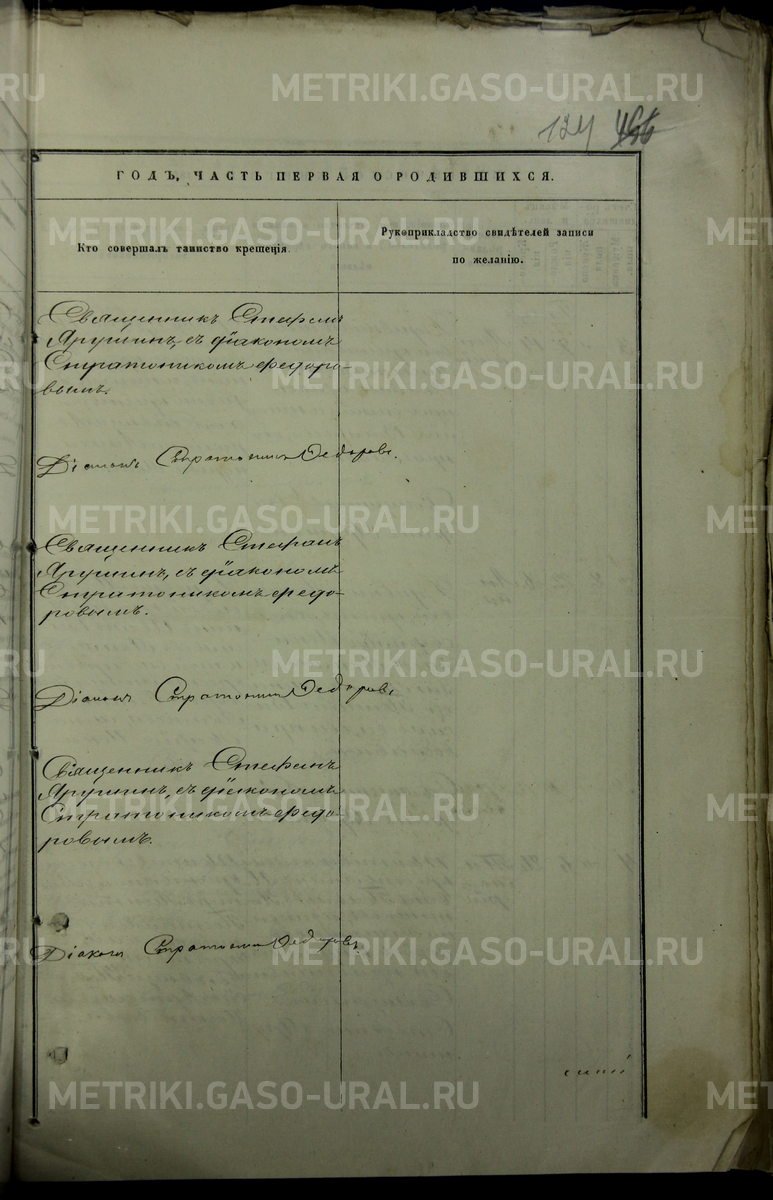 METRIKI.GASO-URAL.RU
124
ГОДЪ, ЧАСТЬ ПЕРВАЯ О РОДИВШИХСЯ.
Кто совершалъ таинство крещенія.
Рукоприкладство свидѣтелей записи
по желанію.
Священникъ Стефанъ
Ярушин, съ діакономъ
Стратоникомъ Федоро-
вымъ.
Діаконъ Стратоникъ Федоровъ.
Священникъ Стефанъ
Ярушин, съ діакономъ
Стратоникомъ Федо-
ровымъ.
Діаконъ Стратоникъ Федоровъ.
Священникъ Стефанъ
Ярушин, съ діакономъ
Стратоникомъ Федо-
ровымъ.
Діаконъ Стратоникъ Федоровъ.